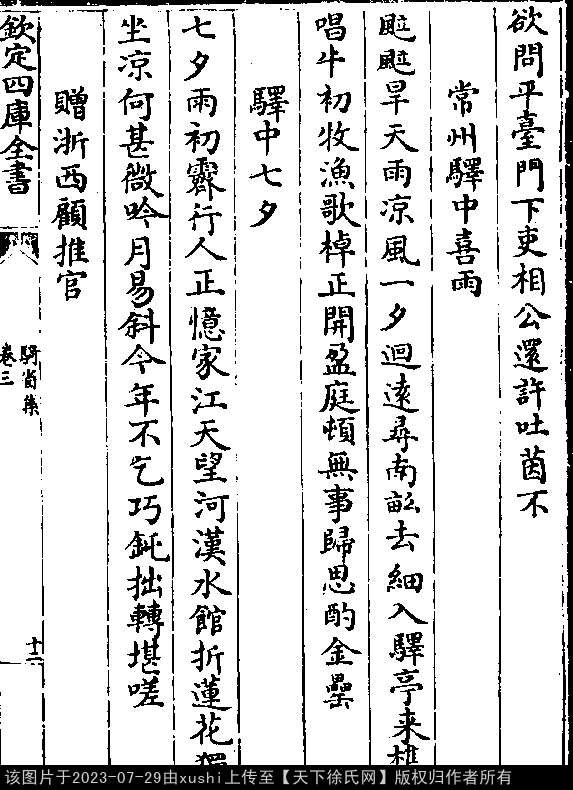 欲問平臺門下吏相公還許吐茵不
常州驛中喜雨
颯颯旱天雨凉風一夕迴遠尋南畝去細入驛亭来樵
唱牛初牧漁歌棹正開盈庭頓無事歸思酌金罍
驛中七夕
七夕雨初霽行人正憶家江天望河漢水館折蓮花獨
坐凉何甚微吟月易斜今年不乞巧鈍拙轉堪嗟
贈浙西顧推官
欽定四庫全書
騎省集
卷三
十二
该图片于2023-07-29由xushi上传至【天下徐氏网】版权归作者所有